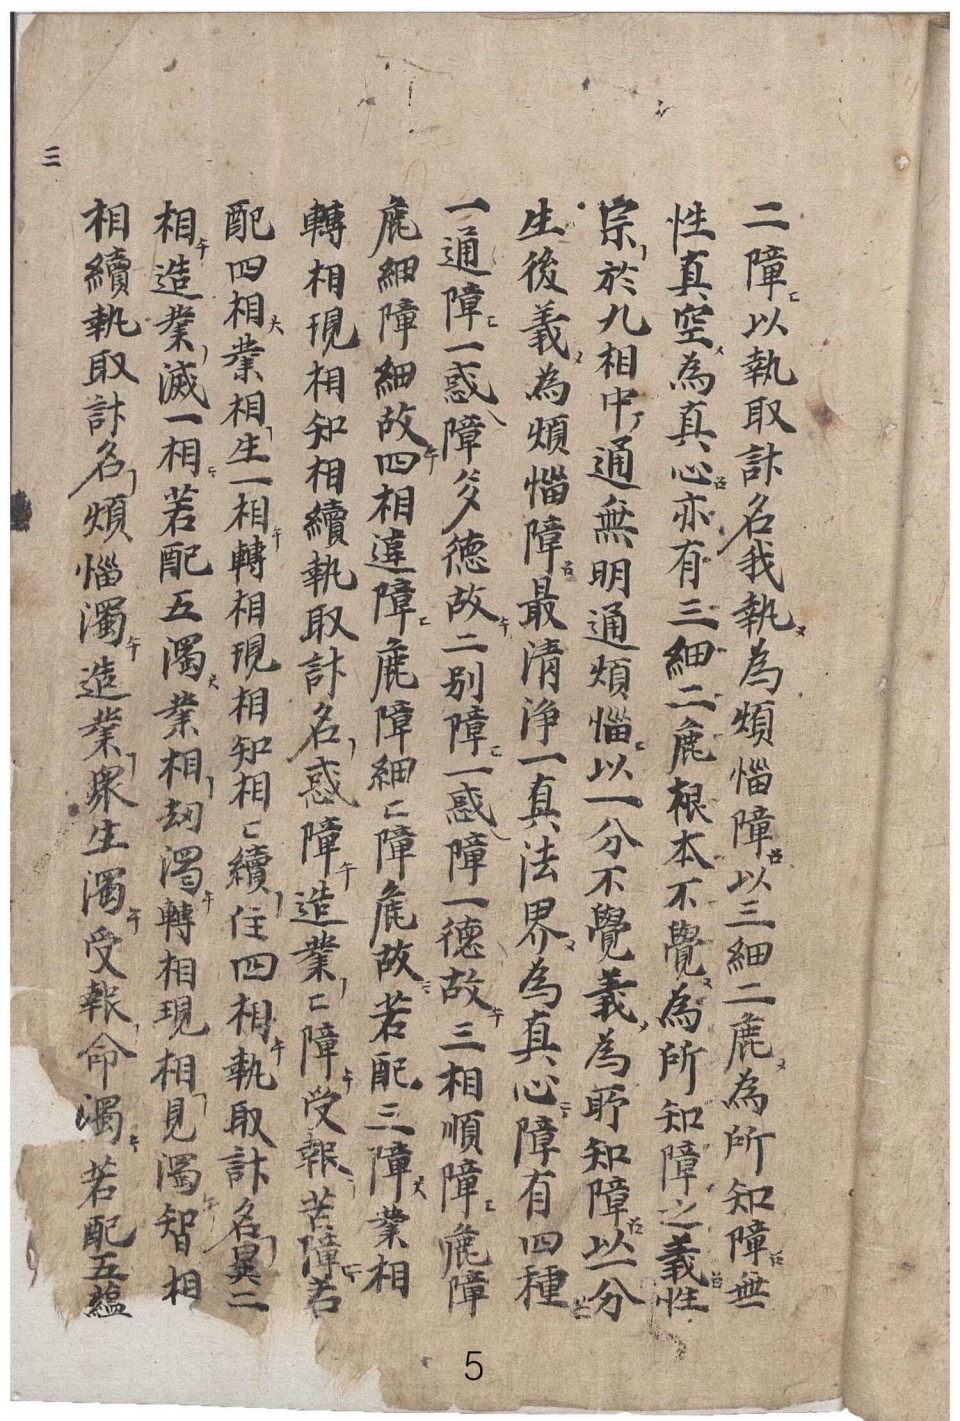 二障以執取計名我執為煩惱障以三細二麁為所知障無
性真空為真心亦有三細二麁根本不覺為所知障之義性
宗於九相中通無明通煩惱以一分不覺義為所知障以一分
生後義為煩惱障最清淨一真法界為真心障有四種
一通障一惑障多德故二別障一惑障一德故三相順障麁障
麁細障細故四相違障麁障細匕障麁故若配三障業相
轉相現相知相續執取計名惑障造業匕障受報苦障若
配四相業相生一相轉相現相知相匕續住四相執取計名異二
相造業滅一相若配五濁業相劫濁轉相現相見濁智相
相續執取計名煩惱濁造業衆生濁受報命濁若配五蘊
三
5